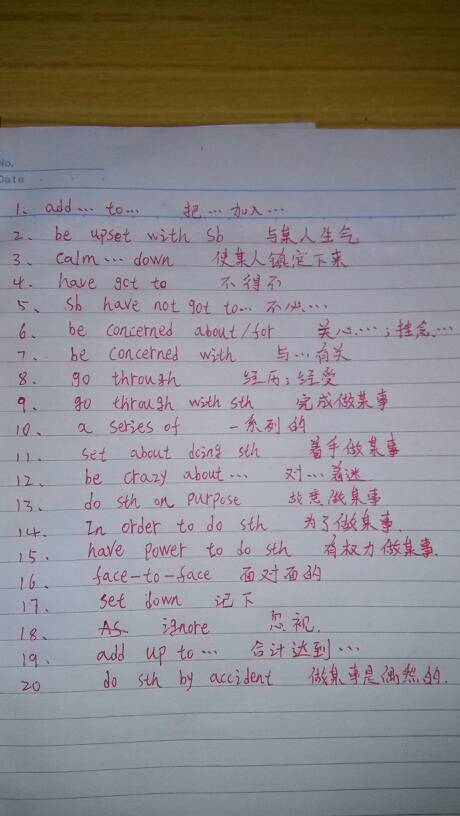 No.
Date
1. add… to… 把…加入…
2. be upset with sb 与某人生气
3. calm… down 使某人镇定下来
4. have got to 不得不
5. sb have not got to… 不必…
6. be concerned about/for 关心…；挂念…
7. be concerned with 与…有关
8. go through 经历；经受
9. go through with sth 完成做某事
10. a series of 一系列的
11. set about doing sth 着手做某事
12. be crazy about… 对…着迷
13. do sth on purpose 故意做某事
14. In order to do sth 为了做某事.
15. have power to do sth 有权力做某事.
16. face-to-face 面对面的
17. set down 记下
18. ignore 忽视.
19. add up to… 合计达到…
20 do sth by accident 做某事是偶然的.